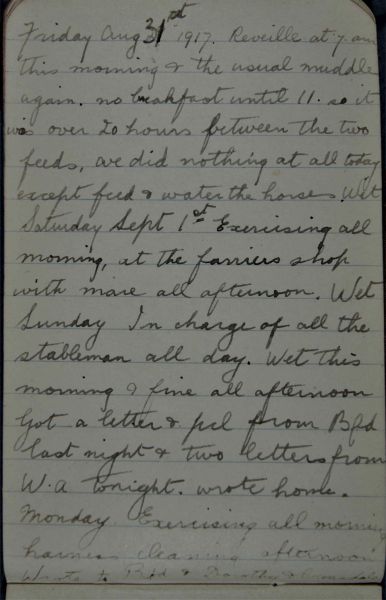 Friday Aug 31st 1917. Reveille at 7 am
this morning & the usual muddle
again. no breakfast until 11. so it
was over 20 hours between the two
feeds, we did nothing at all today
except feed & water the horses. Wet
Saturday Sept 1st Exercising all
morning, at the farriers shop
with mare all afternoon. Wet
Sunday In charge of all the
stableman all day. Wet this
morning & fine all afternoon
Got a letter & pcl from Bfd
last night & two letters from
W.A tonight. wrote home.
Monday Exercising all morning
harness cleaning afternoon
Wrote to Bfd & Dorothy &